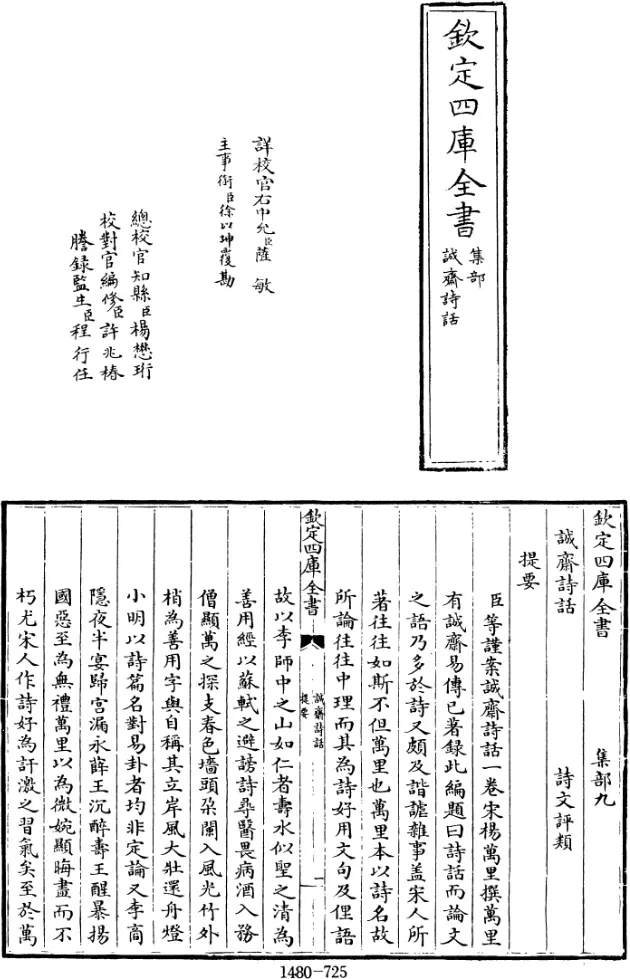 欽定四庫全書
集部
誠齋詩話
詳校官右中允臣薩敏
主事銜臣徐以坤覆勘
總校官知縣臣楊懋珩
校對官編修臣許兆椿
謄錄監生臣程行任
欽定四庫全書 集部九
誠齋詩話 詩文評類
提要
臣等謹案誠齋詩話一卷宋楊萬里撰萬里
有誠齋易傳已著録此編題曰詩話而論文
之語乃多於詩又頗及諧謔雜事盖宋人所
著往往如斯不但萬里也萬里本以詩名故
所論往往中理而其為詩好用文句及俚語
欽定四庫全書
誠齋詩話
提要
一
故以李師中之山如仁者壽水似聖之清為
善用經以蘇軾之避謗詩尋醫畏病酒入務
僧顯萬之探支春色墻頭朶闌入風光竹外
梢為善用字與自稱其立岸風大壯還舟燈
小明以詩篇名對易卦者均非定論又李商
隱夜半宴歸宫漏永薛王沉醉壽王醒暴揚
國惡至為無禮萬里以為微婉顯晦盡而不
朽尤宋人作詩好為訐激之習氣矣至於萬
1480-725